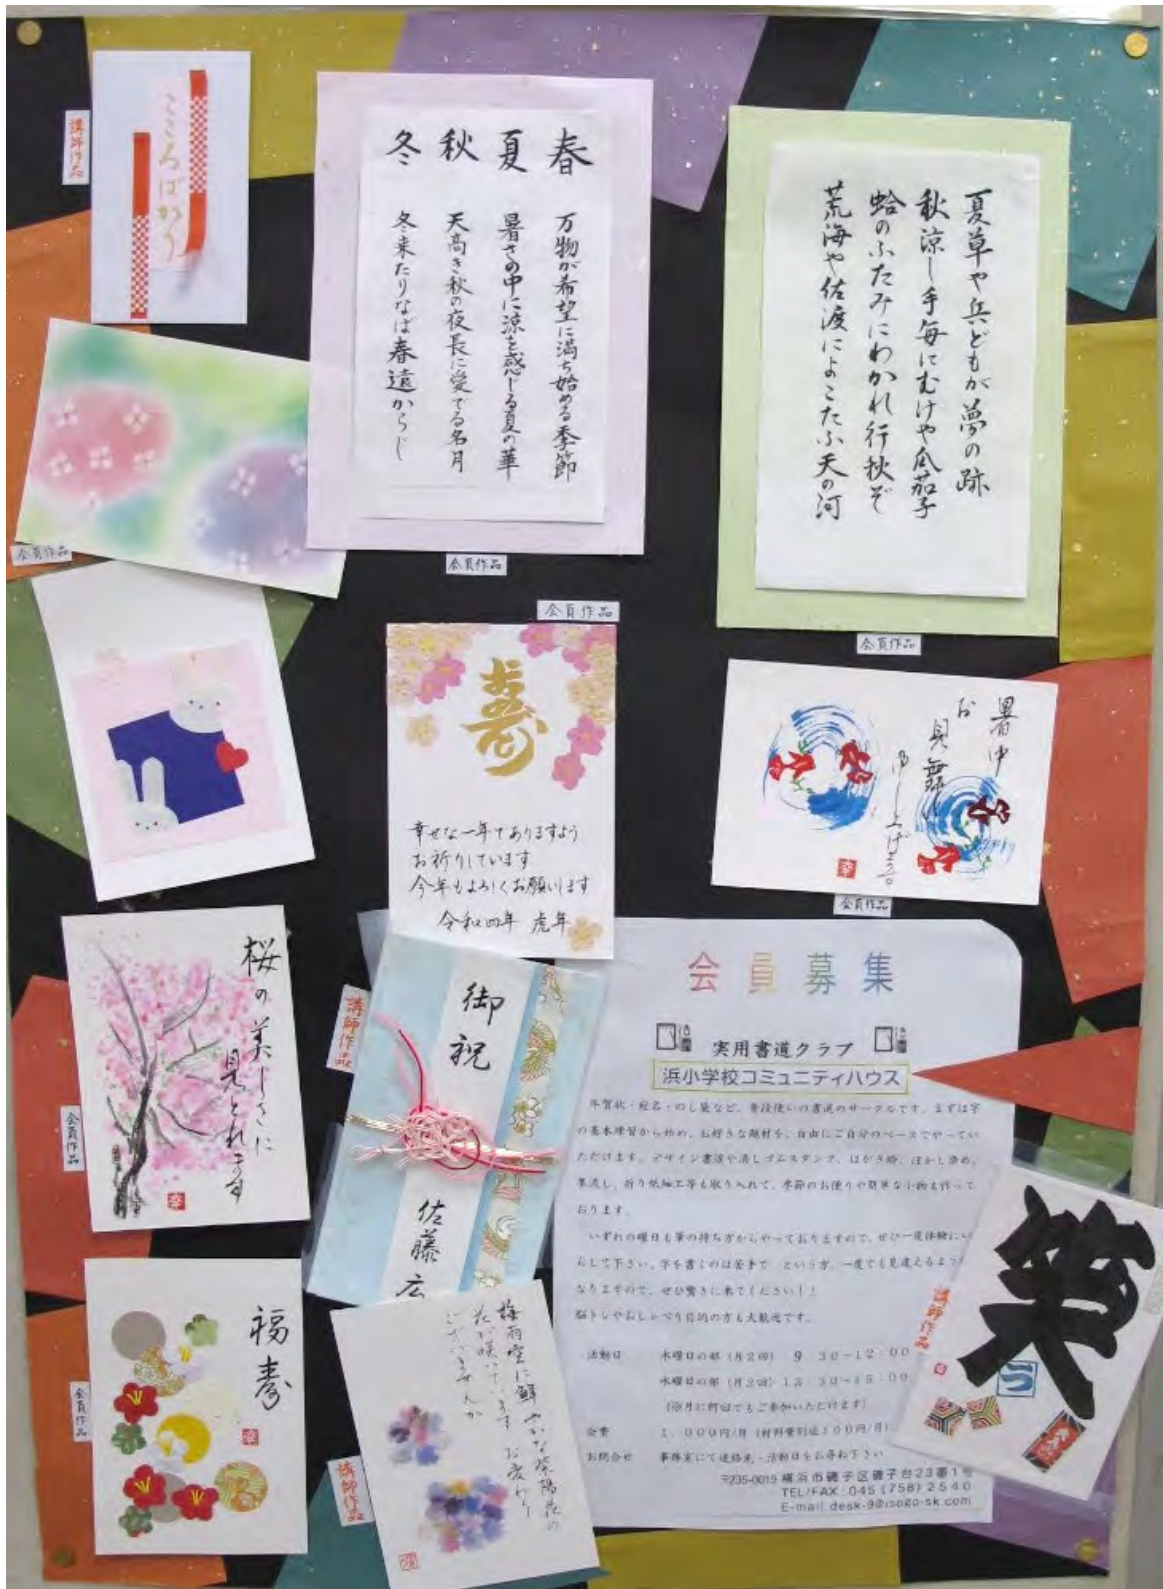 講師作品
こころばかり
春 夏 秋 冬
万物が希望に満ち始める季節
暑さの中に涼を感じる夏の華
天高き秋の夜長に愛でる名月
冬来たりなば春遠からじ
会員作品
夏草や兵どもが夢の跡
秋涼し手毎にむけや瓜茄子
蛤のふたみにわかれ行秋ぞ
荒海や佐渡によこたふ天の河
会員作品
会員作品
会員作品
寿
幸せな一年でありますよう
お祈りしています
今年もよろしくお願いします
令和四年 虎年
暑中
お見舞い
申し上げます。
幸
会員作品
桜の美しさに
見とれます
幸
会員作品
講師作品
御祝
佐藤広
会員募集
実用書道クラブ
浜小学校コミュニティハウス
年賀状・宛名・のし袋など、普段使いの書道のサークルです。まずは字
の基本練習から始め、お好きな題材を、自由にご自分のペースでやってい
ただけます。デザイン書道や消しゴムスタンプ、はがき絵、ぼかし染め、
墨流し、折り紙細工等も取り入れて、季節のお便りや簡単な小物も作って
おります。
いずれの曜日も筆の持ち方からやっておりますので、ぜひ一度体験にい
らして下さい。字を書くのは苦手で という方、一度でも見違えるよう
なりますので、ぜひ驚きに来てください!!
脳トレやおしゃべり目的の方も大歓迎です。
活動日 木曜日の部(月2回) 9:30~12:00
水曜日の部(月2回)13:30~15:00
会費 1,000円/月(材料費別途300円/月)
お問合せ 事務室にて連絡先・活動日をお尋ね下さい
〒235-0019 横浜市磯子区磯子台23番1号
TEL/FAX 045(758)2540
E-mail desk-9@isogo-sk.com
笑
講師作品
福寿
幸
会員作品
梅雨空に鮮やかな紫陽花の
花が咲いています お変わり
ございませんか
講師作品